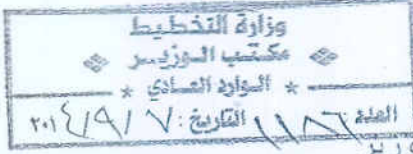 وزارة التخطيط
مكتب الوزير
* الوارد العادي *
العدد: ١١٨٦ التاريخ: ٢٠١٤/٩/٧